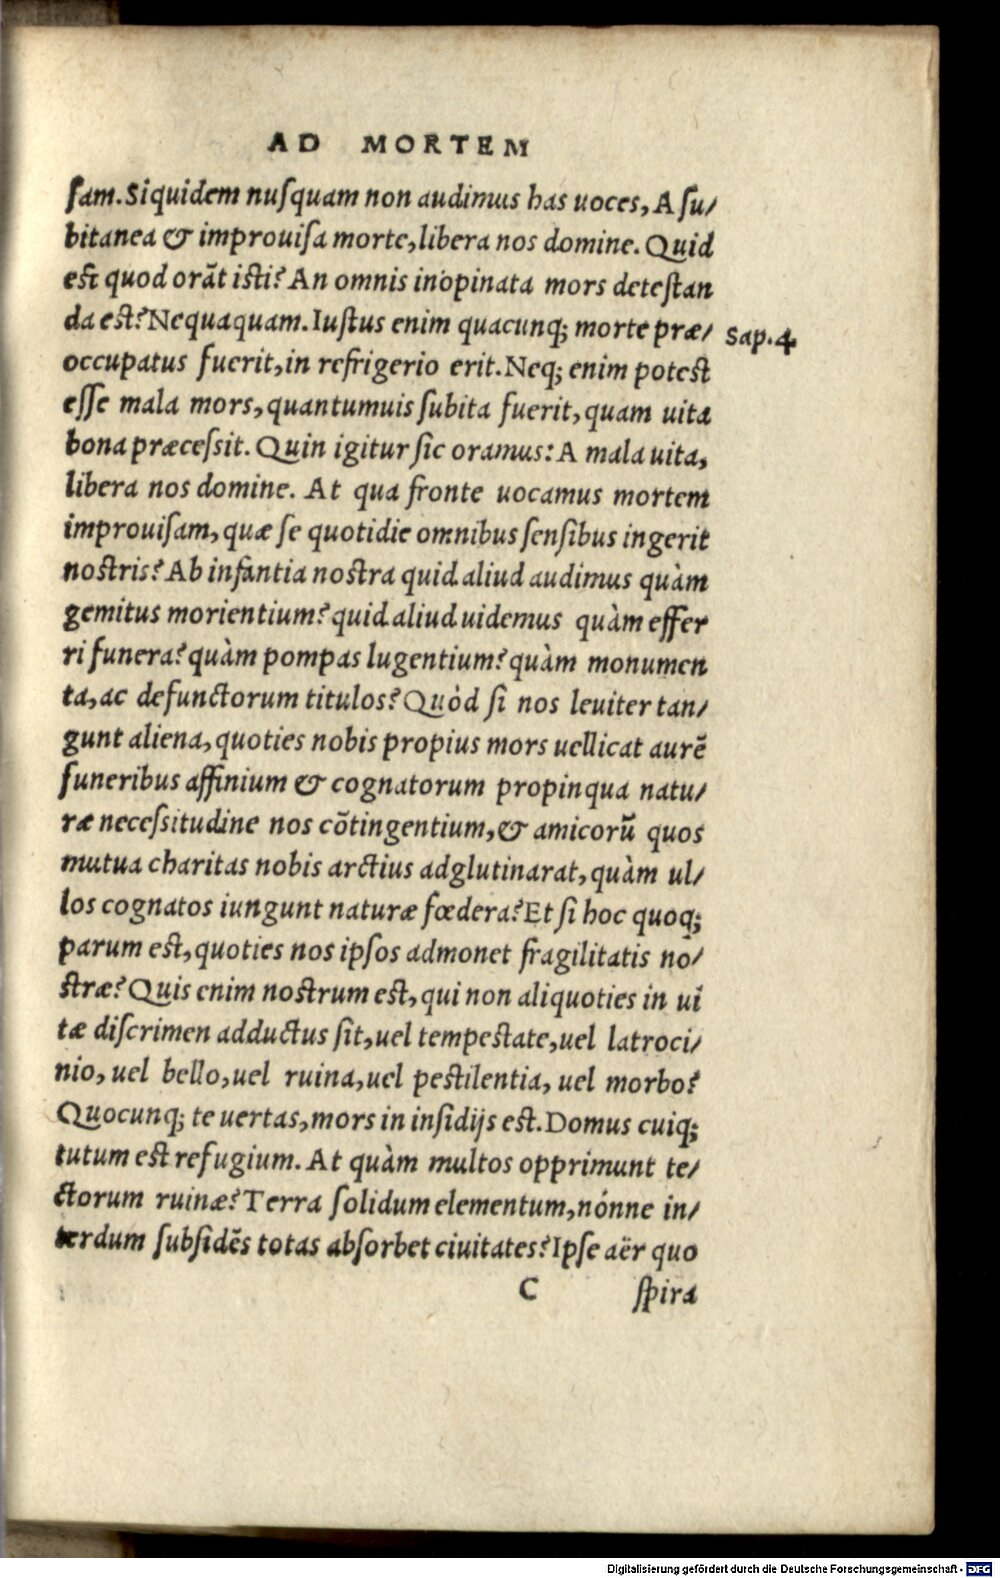 AD MORTEM
ſam. Siquidem nuſquam non audimus has uoces, A ſu/
bitanea & improuiſa morte, libera nos domine. Quid
est quod orãt isti? An omnis inopinata mors detestan
da est? Nequaquam. Iustus enim quacunq; morte præ/
Sap. 4
occupatus fuerit, in refrigerio erit. Neq; enim potest
eſſe mala mors, quantumuis ſubita fuerit, quam uita
bona præceſsit. Quin igitur ſic oramus: A mala uita,
libera nos domine. At qua fronte uocamus mortem
improuiſam, quæ ſe quotidie omnibus ſenſibus ingerit
nostris? Ab infantia nostra quid aliud audimus quàm
gemitus morientium? quid aliud uidemus quàm effer
ri funera? quàm pompas lugentium? quàm monumen
ta, ac defunctorum titulos? Quòd ſi nos leuiter tan/
gunt aliena, quoties nobis propius mors uellicat aurẽ
funeribus affinium & cognatorum propinqua natu/
ræ neceſsitudine nos cõtingentium, & amicorũ quos
mutua charitas nobis arctius adglutinarat, quàm ul/
los cognatos iungunt naturæ fœdera? Et ſi hoc quoq;
parum est, quoties nos ipſos admonet fragilitatis no/
stræ? Quis enim nostrum est, qui non aliquoties in ui
tæ diſcrimen adductus ſit, uel tempestate, uel latroci/
nio, uel bello, uel ruina, uel pestilentia, uel morbo?
Quocunq; te uertas, mors in inſidijs est. Domus cuiq;
tutum est refugium. At quàm multos opprimunt te/
ctorum ruinæ? Terra ſolidum elementum, nónne in/
terdum ſubſidẽs totas abſorbet ciuitates? Ipſe aër quo
C ſpira
Digitalisierung gefördert durch die Deutsche Forschungsgemeinschaft - DFG